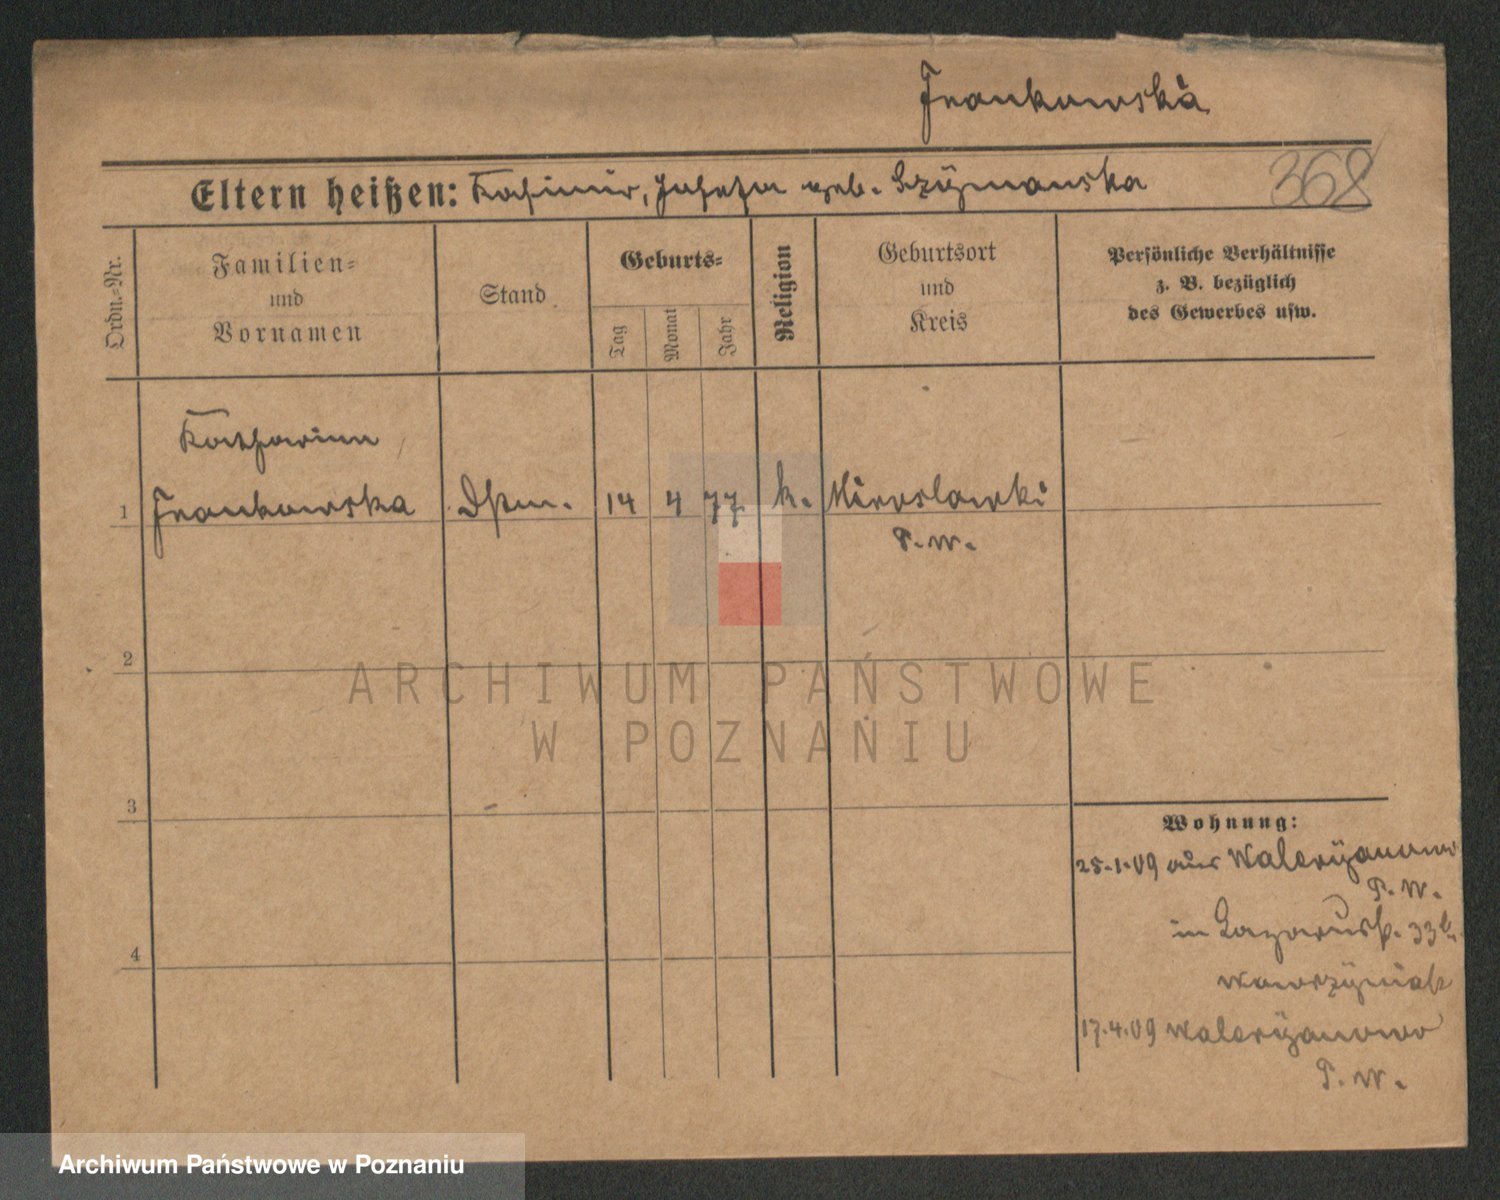 Frankowska
Eltern heißen: Kasimir, Josefa geb. Szymanska
368
Ordn.-Nr.
Familien-
und
Vornamen
Stand
Geburts-
Tag
Monat
Jahr
Religion
Geburtsort
und
Kreis
Persönliche Verhältnisse
z. B. bezüglich
des Gewerbes usw.
Katharina
1 Frankowska 14 4 77 k. Miroslawki
P. W.
2
ARCHIWUM PAŃSTWOWE
W POZNANIU
3
Wohnung:
25.1.09 aus Waleryanowo
P. W.
in Lazarusstr. 33
Wawrzyniak
4
17.4.09 Waleryanowo
P. W.
Archiwum Państwowe w Poznaniu